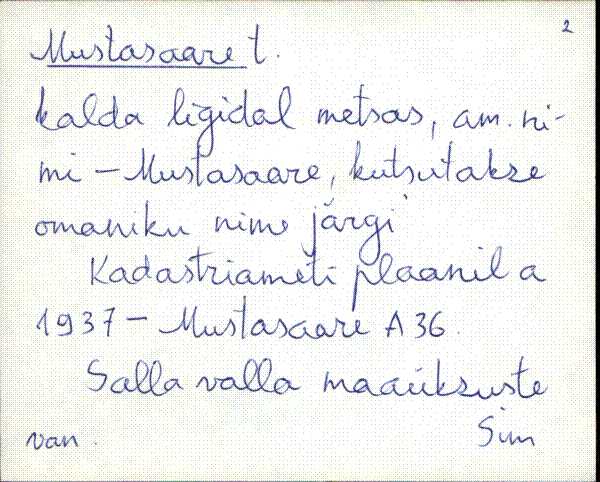 2
Mustasaare t.
kalda ligidal metsas, am. ni-
mi - Mustasaare, kutsutakse
omaniku nime järgi
Kadastriameti plaanil a
1937 - Mustasaare A 36.
Salla valla maaüksuste
van. Sim